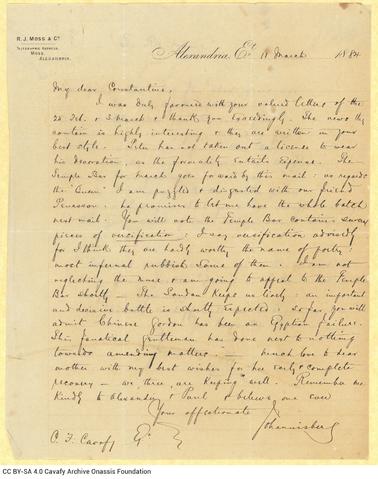 R. J. MOSS & Co.
TELEGRAPHIC ADDRESS,
MOSS,
ALEXANDRIA.
Alexandria, Et. 11 March 1884
My dear Constantine,
I was duly favored with your valued letters of the
22 Feb. & 3 March & thank you exceedingly. The news they
contain is highly interesting & they are written in your
best style. has not taken out a license to wear
his decoration, as the formality entails expense. The
Temple Bar for March goes forward by this mail: as regards
the "Queen" I am puzzled & disgusted with our friend
he promises to let me have the whole batch
next mail. You will note the Temple Bar contains several
pieces of versification: I say versification advisedly
for I think they are hardly worthy the name of poetry:
most infernal rubbish some of them. I am not
neglecting the muse & am going to appeal to the Temple
Bar shortly — The Soudan keeps us lively: an important
and decisive battle is shortly expected. So far you will
admit Chinese Gordon has been an Egyptian failure.
This fanatical gentleman has done next to nothing
towards amending matters. — much love to dear
mother with my best wishes for her early & complete
recovery — we three are keeping well. Remember me
kindly to Alexander & Paul & believe me ever
Your affectionate
Johannisberg
C. F. Cavafy Esq
CC BY-SA 4.0 Cavafy Archive Onassis Foundation